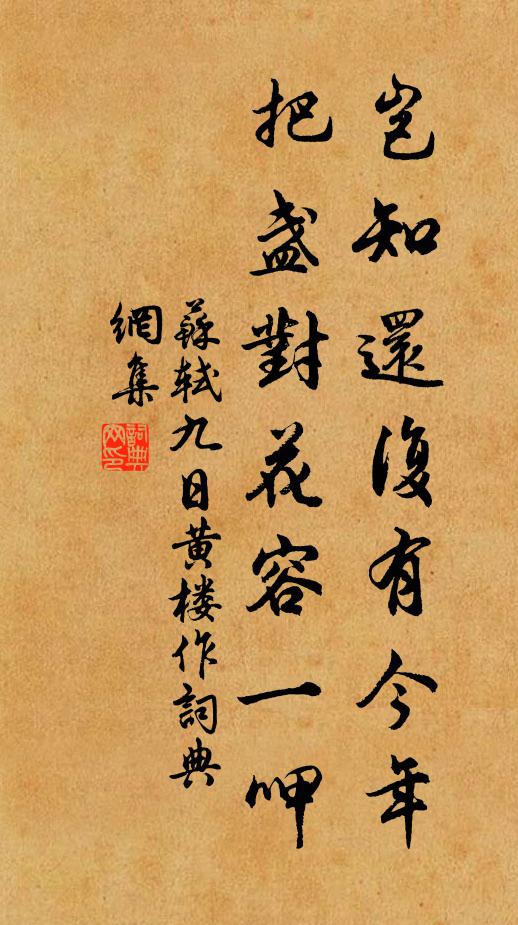 豈知還復有今年
把盞對花容一呷
蘇軾九日黄楼作詞典
網集
詞典網印